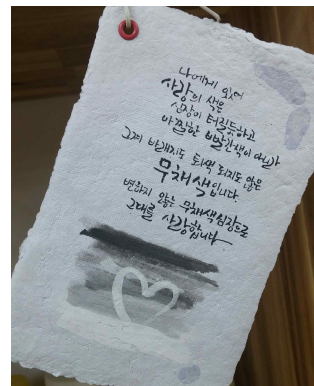 나에게 있어
사랑의 색은
심장이 터질듯하고
아찔한 빨간색이 아닌
그저 바래지도 퇴색 되지도 않은
무채색입니다.
변하지 않는 무채색심장으로
그대를 사랑합니다